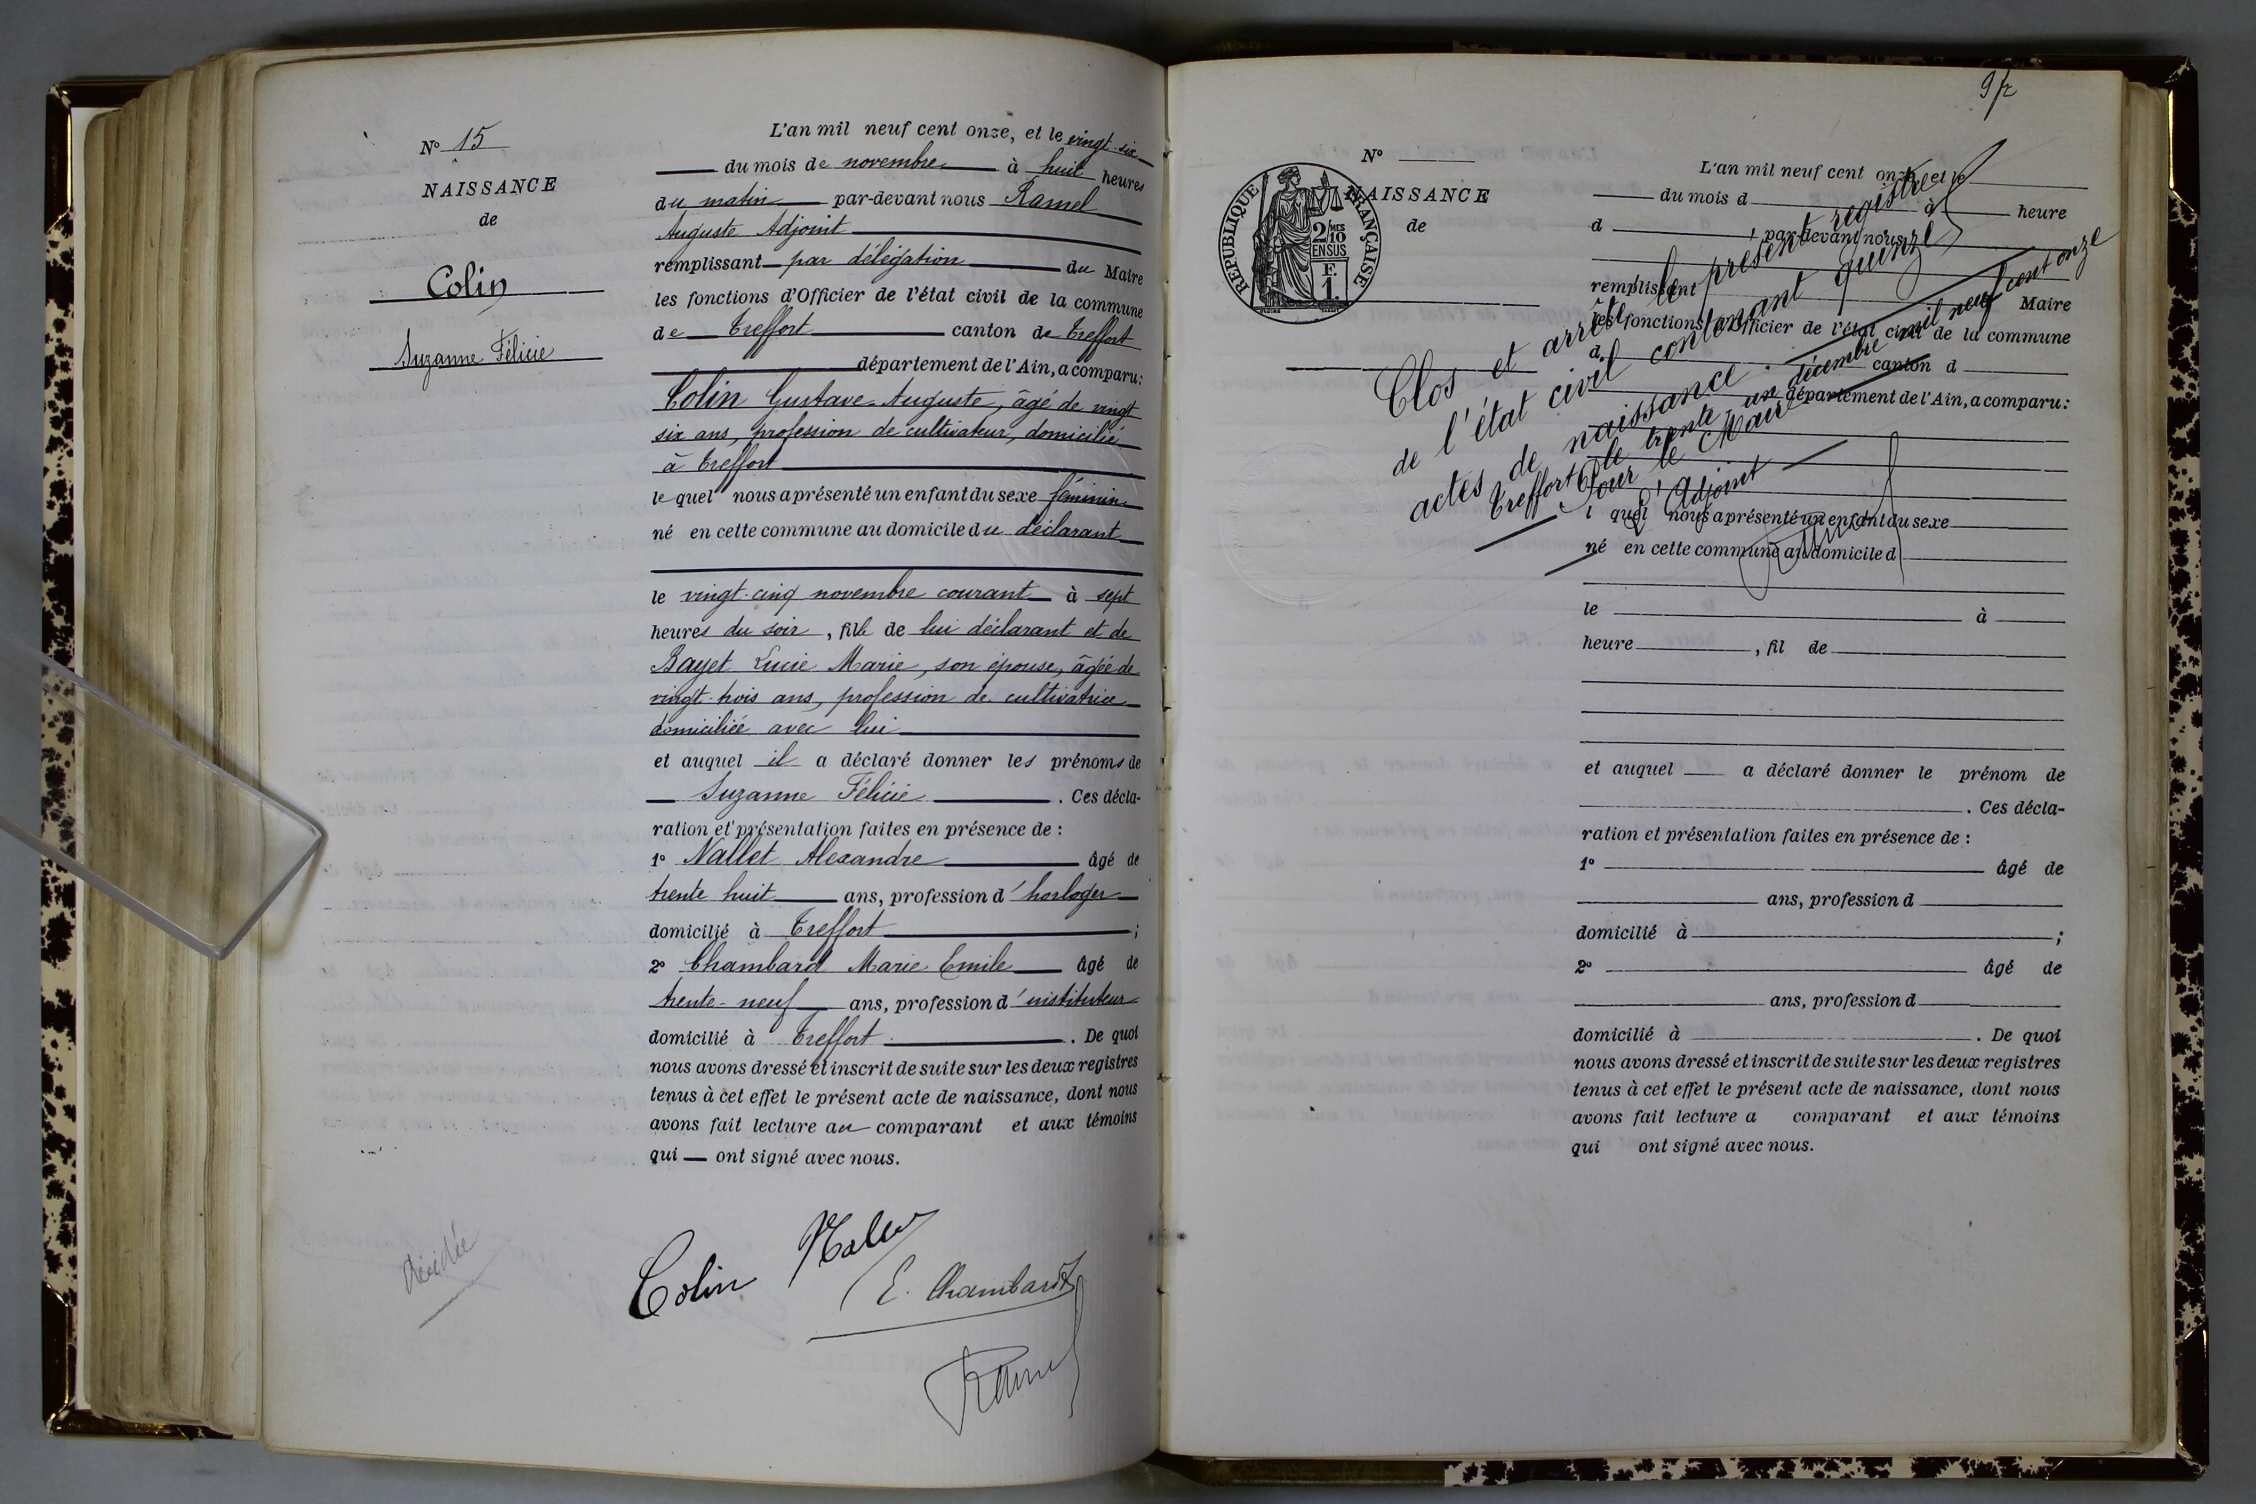 N° 15
NAISSANCE
de
Colin
Suzanne Félicie
L'an mil neuf cent onze, et le vingt-six
du mois de novembre à huit heures
du matin par-devant nous Ramel
Auguste Adjoint
remplissant par délégation du Maire
les fonctions d'Officier de l'état civil de la commune
de Treffort canton de Treffort
département de l'Ain, a comparu:
Colin Gustave Auguste, âgé de vingt
six ans, profession de cultivateur, domicilié
à Treffort
le quel nous a présenté un enfant du sexe féminin
né en cette commune au domicile du déclarant
le vingt-cinq novembre courant à sept
heures du soir, fille de lui déclarant et de
Bayet Lucie Marie, son épouse, âgée de
vingt-trois ans, profession de cultivatrice
domiciliée avec lui
et auquel il a déclaré donner les prénoms de
Suzanne Félicie. Ces décla-
ration et présentation faites en présence de :
1° Nallet Alexandre âgé de
trente huit ans, profession d'horloger
domicilié à Treffort ;
2° Chambard Marie Emile âgé de
trente-neuf ans, profession d'instituteur
domicilié à Treffort. De quoi
nous avons dressé et inscrit de suite sur les deux registres
tenus à cet effet le présent acte de naissance, dont nous
avons fait lecture au comparant et aux témoins
qui ont signé avec nous.
Colin Nallet
E. Chambard
Ramel
décédée
N°
NAISSANCE
de
RÉPUBLIQUE FRANÇAISE
2/10
EN SUS
F.
1.
L'an mil neuf cent onze, et le
du mois d à heure
d , par-devant nous
remplissant Maire
les fonctions d'Officier de l'état civil de la commune
d canton d
département de l'Ain, a comparu:
Clos et arrêté le présent registre
de l'état civil contenant quinze
actes de naissance.
Treffort le trente un décembre mil neuf cent onze
Pour le Maire
L'Adjoint
Ramel
l quel nous a présenté un enfant du sexe
né en cette commune au domicile d
le à
heure , fil de
et auquel a déclaré donner le prénom de
. Ces décla-
ration et présentation faites en présence de :
1° âgé de
ans, profession d
domicilié à ;
2° âgé de
ans, profession d
domicilié à . De quoi
nous avons dressé et inscrit de suite sur les deux registres
tenus à cet effet le présent acte de naissance, dont nous
avons fait lecture a comparant et aux témoins
qui ont signé avec nous.